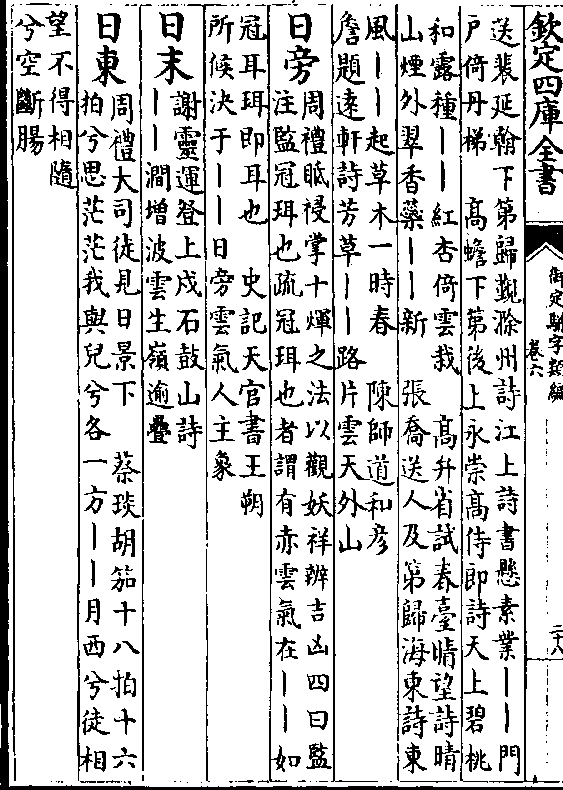 欽定四庫全書
御定駢字類編
卷六
二十八
送裴延翰下第歸覲滁州詩江上詩書懸素業丨丨門
戶倚丹梯　高蟾下第後上永崇高侍郎詩天上碧桃
和露種丨丨紅杏倚雲栽　高弁省試春臺晴望詩晴
山煙外翠香蘂丨丨新　張喬送人及第歸海東詩東
風丨丨起草木一時春　陳師道和彥
詹題遠軒詩芳草丨丨路片雲天外山
日旁
周禮眂祲掌十煇之法以觀妖祥辨吉凶四曰監
注監冠珥也疏冠珥也者謂有赤雲氣在丨丨如
冠耳珥即耳也　史記天官書王朔
所候決于丨丨日旁雲氣人主象
日末
謝靈運登上戍石鼓山詩
丨丨澗增波雲生嶺逾疊
日東
周禮大司徒見日景下　蔡琰胡笳十八拍十六
拍兮思茫茫我與兒兮各一方丨丨月西兮徒相
望不得相隨
兮空斷腸